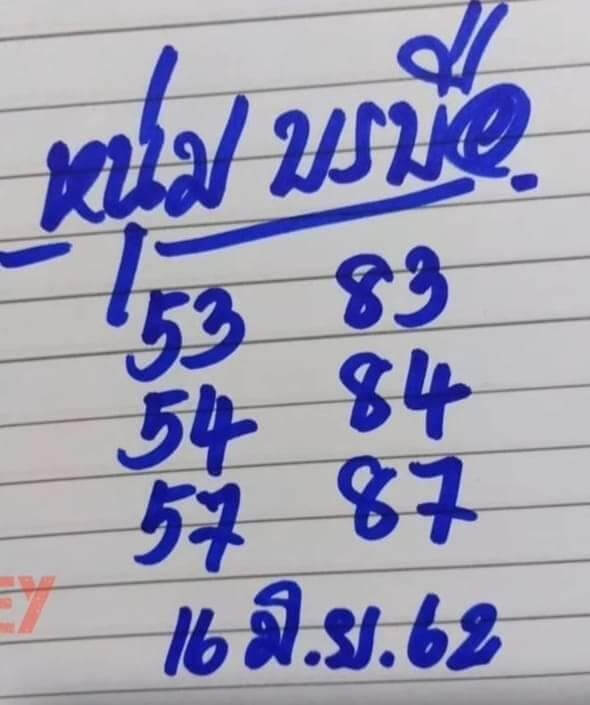 หนุ่ม บรบือ
53 83
54 84
57 87
EY
16 มิ.ย.62